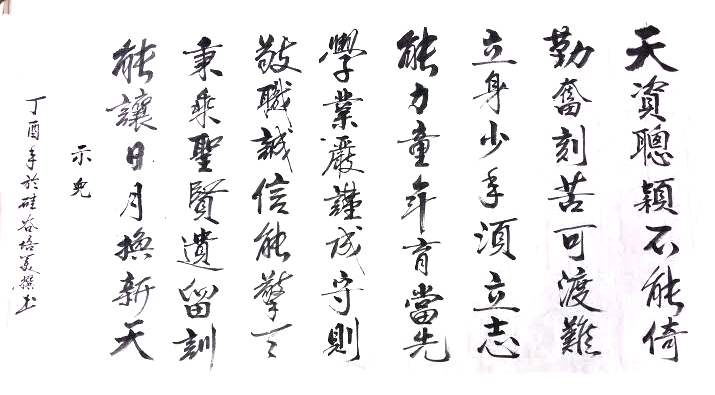 天資聰穎不能倚
勤奮刻苦可渡難
立身少年須立志
能力童年育當先
學業嚴謹成守則
敬職誠信能擎天
秉乘聖賢遺留訓
能讓日月換新天
示兒
丁酉年於硅谷培美撰书